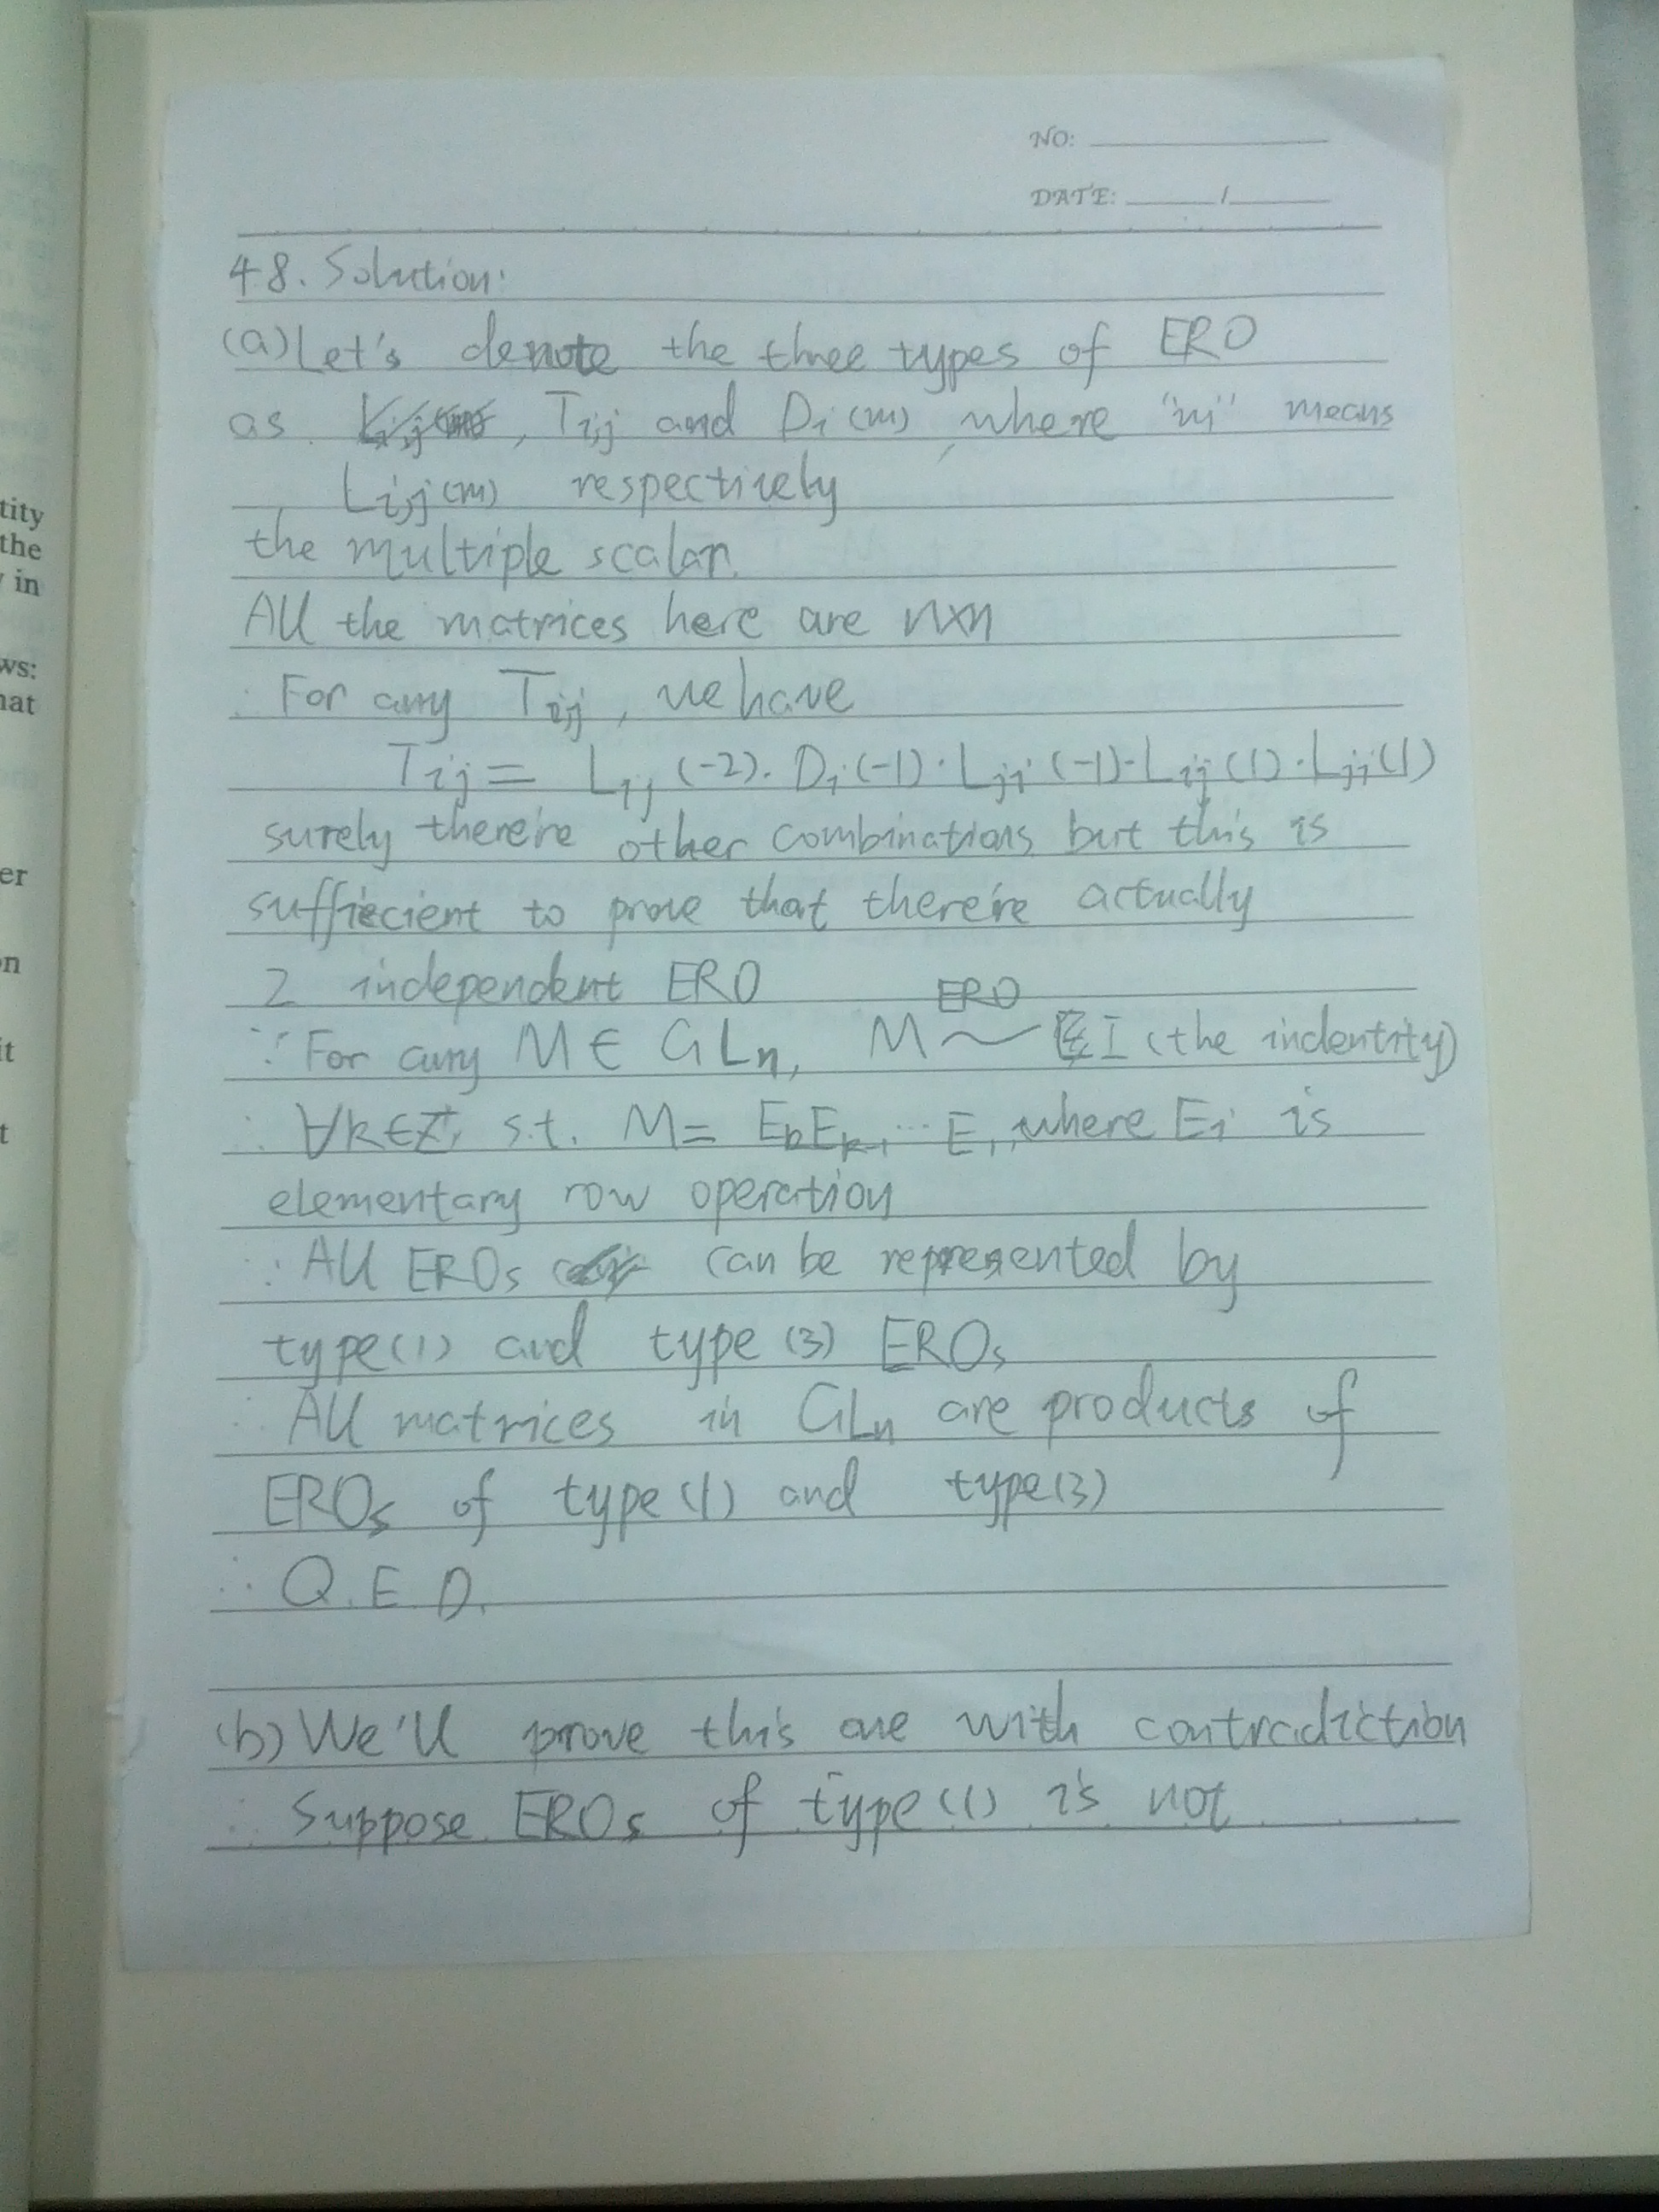 NO:
DATE: /
48. Solution:
(a) Let's denote the three types of ERO
as , Tij and Di(m) , where "m" means
Lij(m) respectively
the multiple scalar.
All the matrices here are n×n
∴ For any Tij, we have
Tij = Lij(-2)·Di(-1)·Lji(-1)·Lij(1)·Lji(1)
surely there're other combinations but this is
suffiecient to prove that there're actually
2 independent ERO
∵ For any M ∈ GLn, M ~ I (the indentity)
ERO
∴ ∀k∈Z⁺, s.t. M = EkEk-1…E1, where Ei is
elementary row operation
∵ All EROs can be represented by
type(1) and type(3) EROs
∴ All matrices in GLn are products of
EROs of type(1) and type(3)
∴ Q.E.D.
(b) We'll prove this one with contradiction
∴ Suppose EROs of type(1) is not
tity
the
in
ws:
hat
er
on
it
t